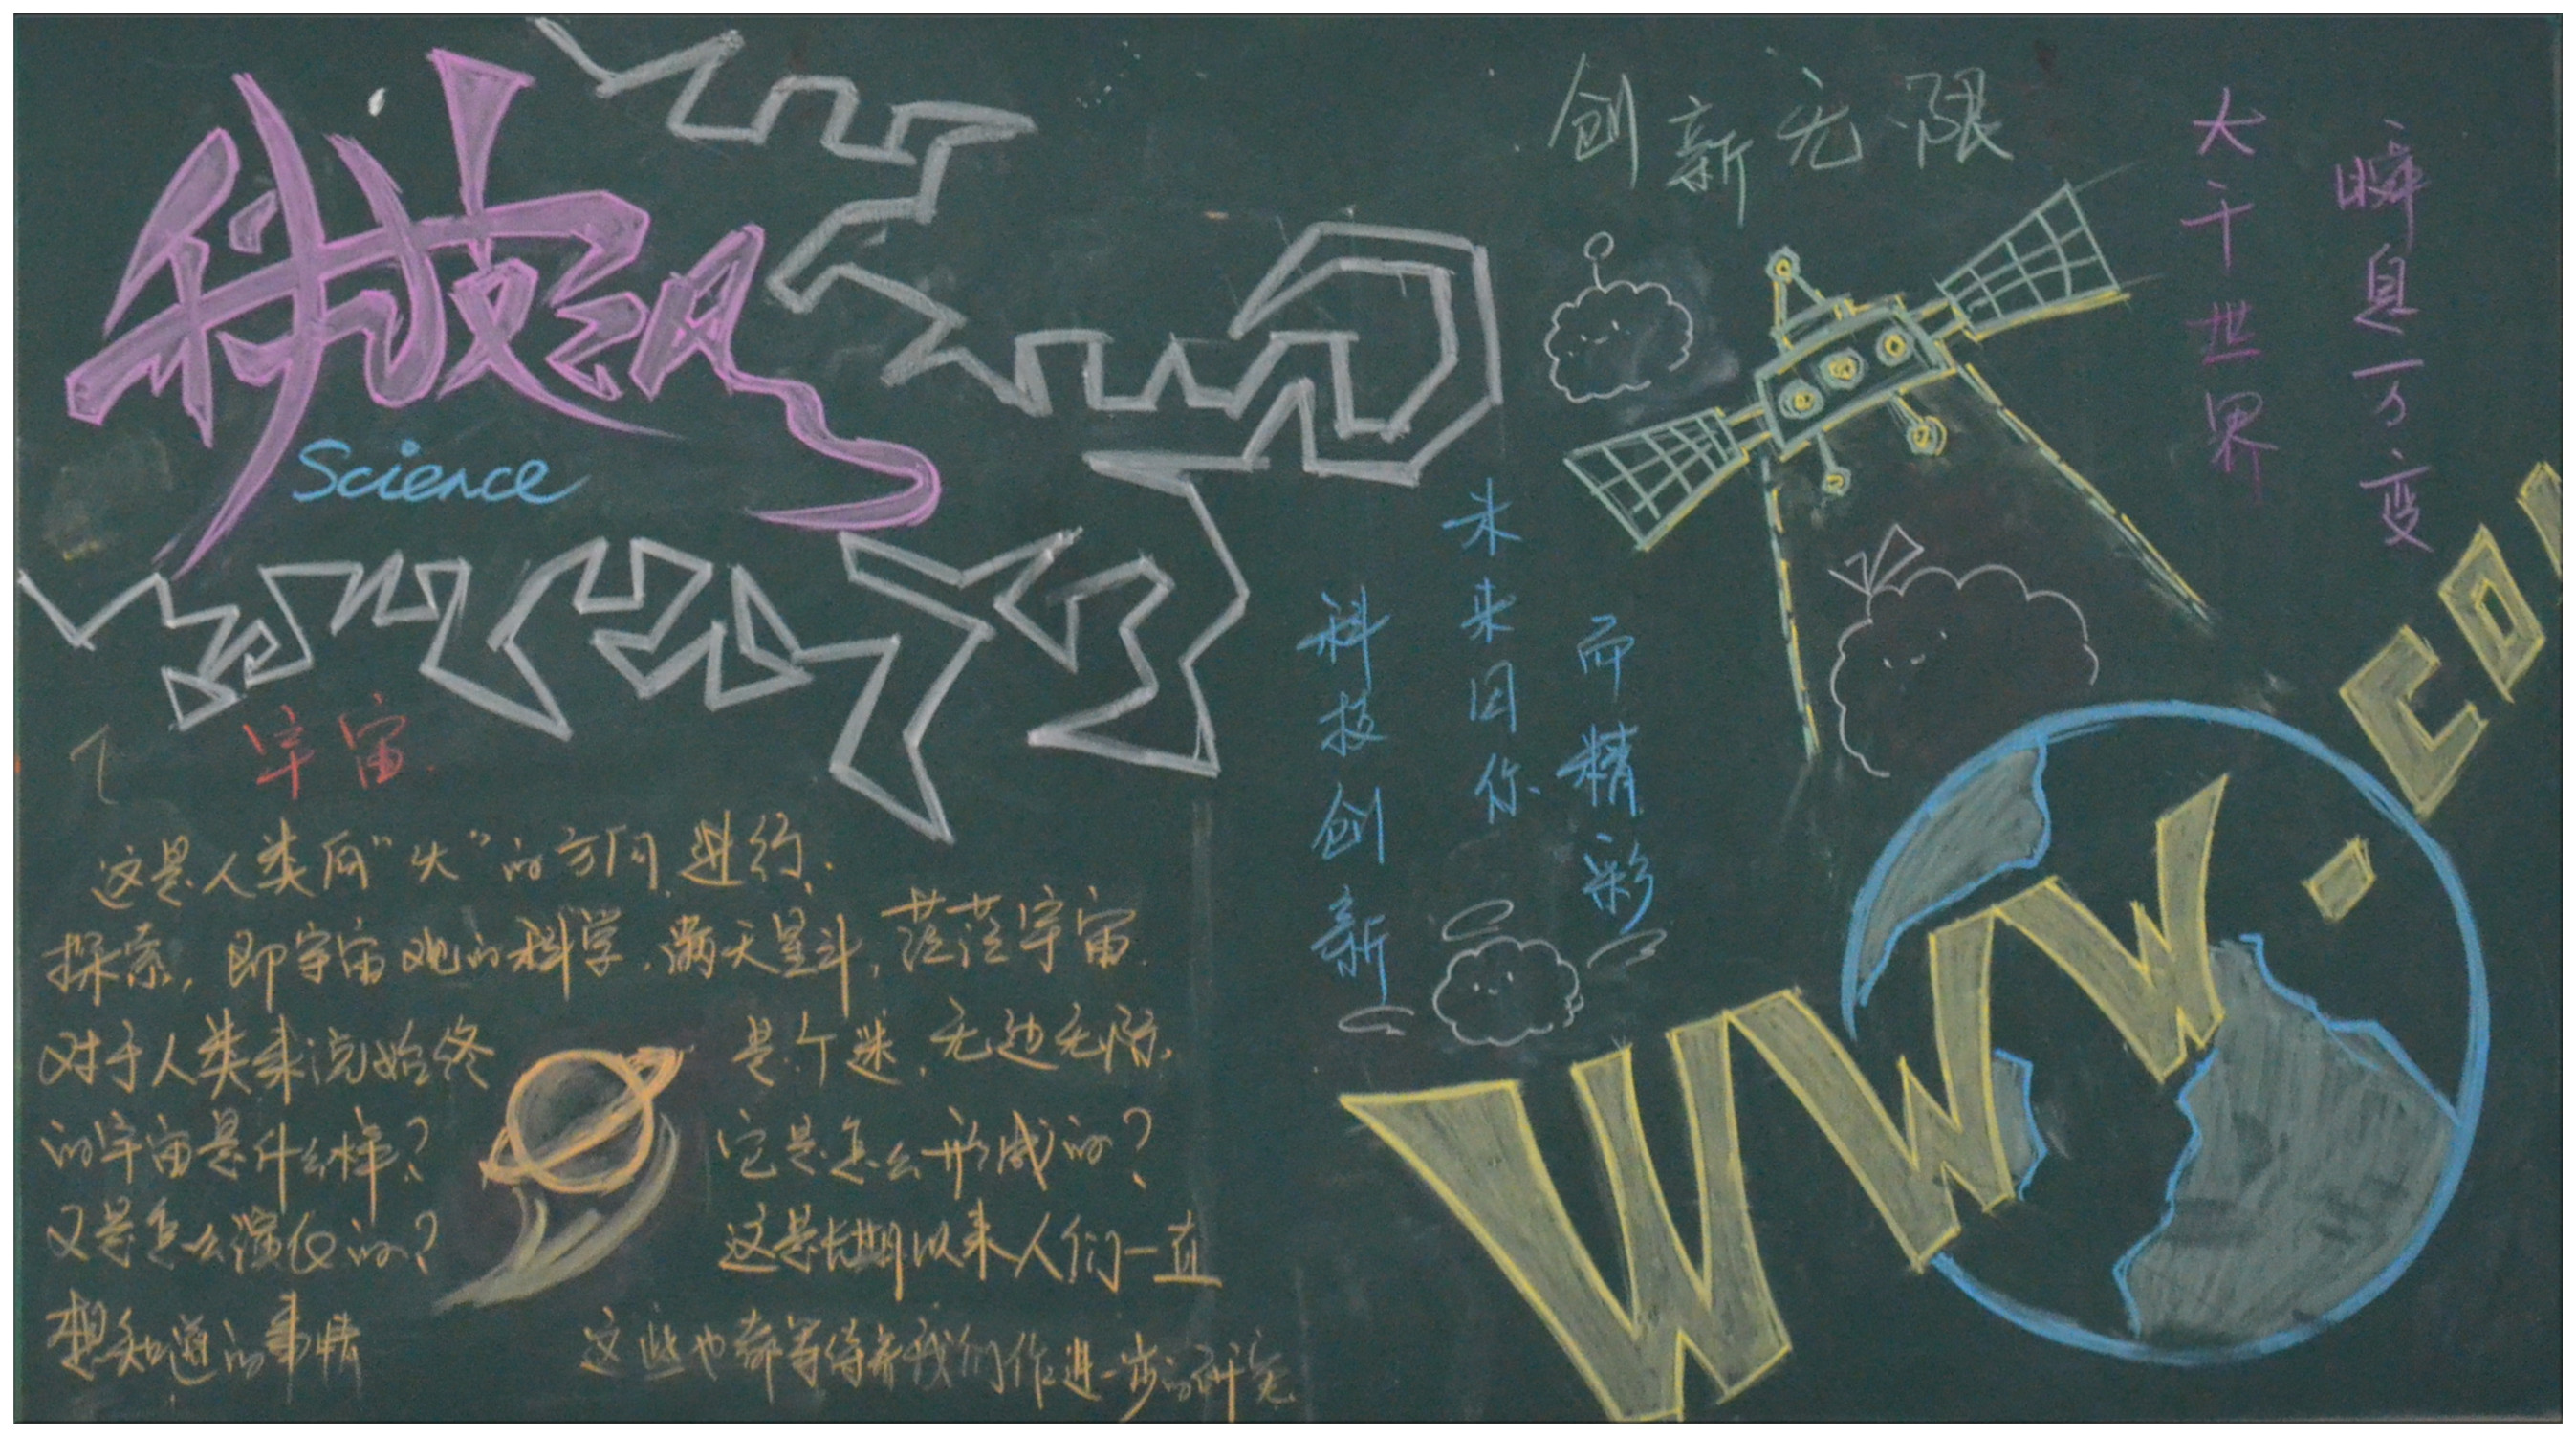 Science
宇宙
这是人类向“大”的方向进行
探索，即宇宙观的科学，满天星斗，茫茫宇宙
对于人类来说始终是个迷，无边无际，
的宇宙是什么样？它是怎么形成的？
又是怎么演化的？这是长期以来人们一直
想知道的事情 这些也都等待着我们作进一步的研究
创新无限
大千世界
瞬息万变
科技创新
未来因你
而精彩
www.co